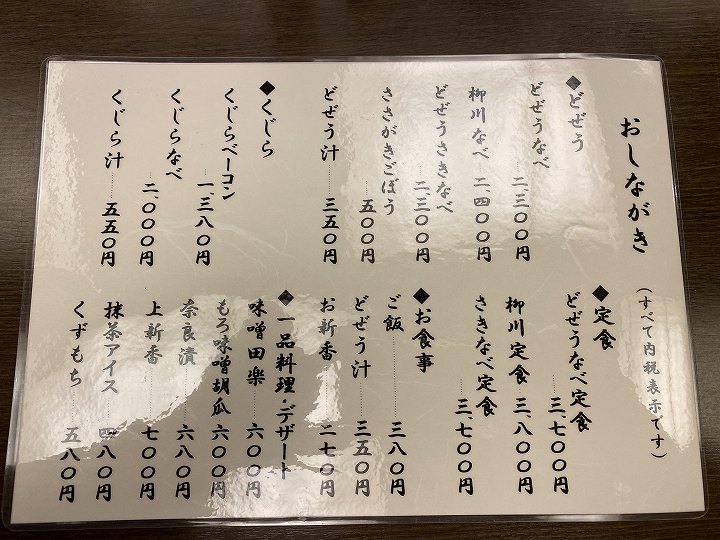 おしながき
(すべて内税表示です)
◆どぜう
どぜうなべ 二、三〇〇円
柳川なべ 二、四〇〇円
どぜうさきなべ 二、三〇〇円
ささがきごぼう 五〇〇円
どぜう汁 三五〇円
◆くじら
くじらベーコン 一、三八〇円
くじらなべ 二、〇〇〇円
くじら汁 五五〇円
◆定食
どぜうなべ定食 三、七〇〇円
柳川定食 三、八〇〇円
さきなべ定食 三、七〇〇円
◆お食事
ご飯 三八〇円
どぜう汁 三五〇円
お新香 二七〇円
◆一品料理・デザート
味噌田楽 六〇〇円
もろ味噌胡瓜 六〇〇円
奈良漬 六八〇円
上新香 七〇〇円
抹茶アイス 四八〇円
くずもち 五八〇円